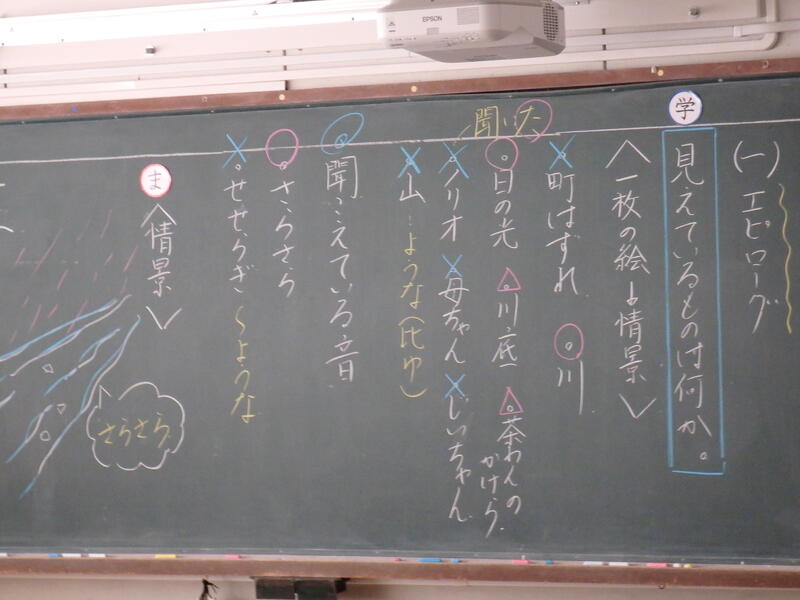 EPSON
(一)エピローグ
学
見えているものは何か。
〈一枚の絵→情景〉
町はずれ 川
聞いた
日の光 川底 茶わんのかけら
ノリオ 母ちゃん じいちゃん
山…ような(比ゆ)
聞こえている音
さらさら
せせらぎ〜ような
ま
〈情景〉
さらさら